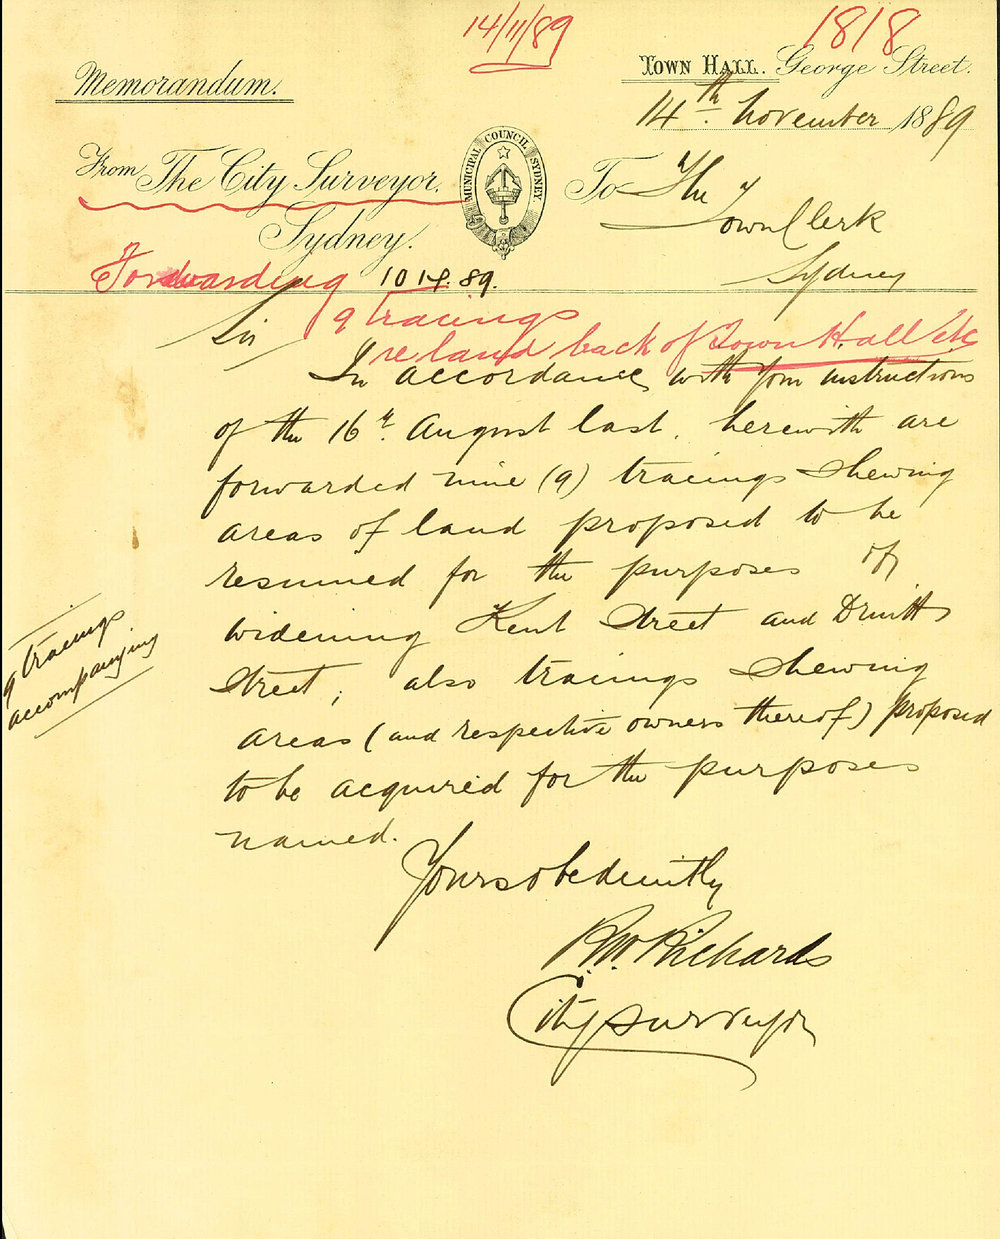 14/11/89
1818
Memorandum.
TOWN HALL. George Street.
14th. November 1889
From The City Surveyor.
Sydney.
MUNICIPAL COUNCIL SYDNEY
To The
Town Clerk
Sydney
Forwarding 1014.89.
9 tracings
re land back of Town Hall etc
Sir
In accordance with your instructions
of the 16th. August last, herewith are
forwarded nine (9) tracings shewing
areas of land proposed to be
resumed for the purposes of
widening Kent Street and Druitt
Street; also tracings shewing
areas (and respective owners thereof) proposed
to be acquired for the purposes
named.
9 tracings
accompanying
Yours obediently
R.W. Richards
City Surveyor